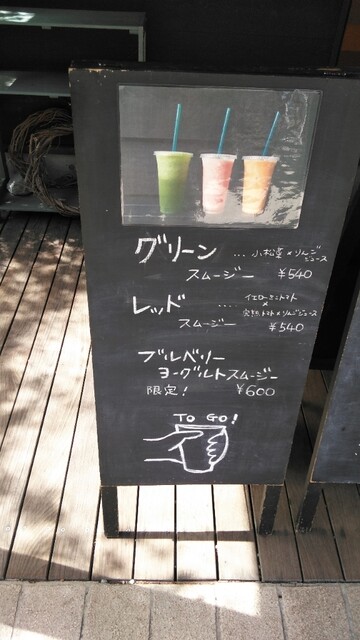 グリーン ... 小松菜×りんごジュース
スムージー ¥540
レッド ... イエローミニトマト
×
完熟トマト×りんごジュース
スムージー ¥540
ブルベリー
ヨーグルトスムージー
限定! ¥600
TO GO!